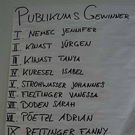 PUBLIKUMS GEWINNER
I NEMEC JENNIFER
II KINAST JÜRGEN
III KINAST TANYA
IV KURESEL ISABEL
V STROHWASSER JOHANNES
VI FLETTINGER VANESSA
VII DODEN SARAH
VIII POETZL ADRIAN
IX REITINGER FANNY